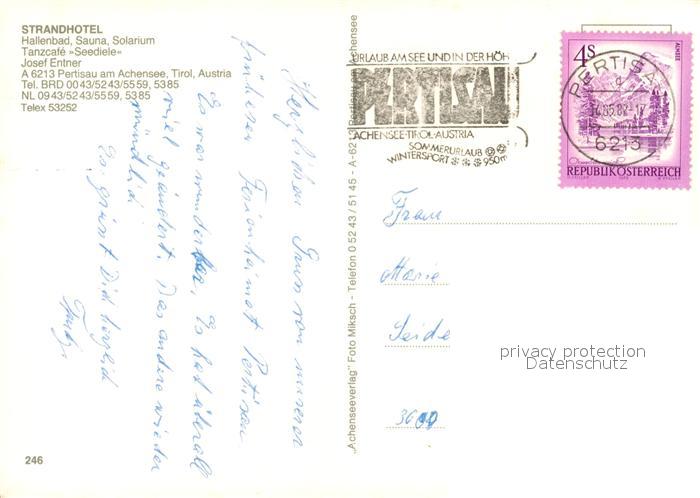 STRANDHOTEL
Hallenbad, Sauna, Solarium
Tanzcafé »Seediele«
Josef Entner
A 6213 Pertisau am Achensee, Tirol, Austria
Tel. BRD 00 43/52 43/55 59, 53 85
NL 09 43/52 43/55 59, 53 85
Telex 53252
Herzlichen Gruss von unserer
früheren Ferienheimat Pertisau
Es war wunderbar, Es hat überall
viel geändert. Das andere wieder
mündlich
Es grüsst Dich herzlich
246
„Achenseeverlag" Foto Miksch - Telefon 0 52 43 / 51 45 - A-62 Pertisau am Achensee
URLAUB AM SEE UND IN DER HÖH
PERTISAU
ACHENSEE-TIROL-AUSTRIA
SOMMERURLAUB
WINTERSPORT 950m
4S
ALMSEE
REPUBLIK ÖSTERREICH
PERTISAU
6213
Frau
Marie
Seide
3600
privacy protection
Datenschutz